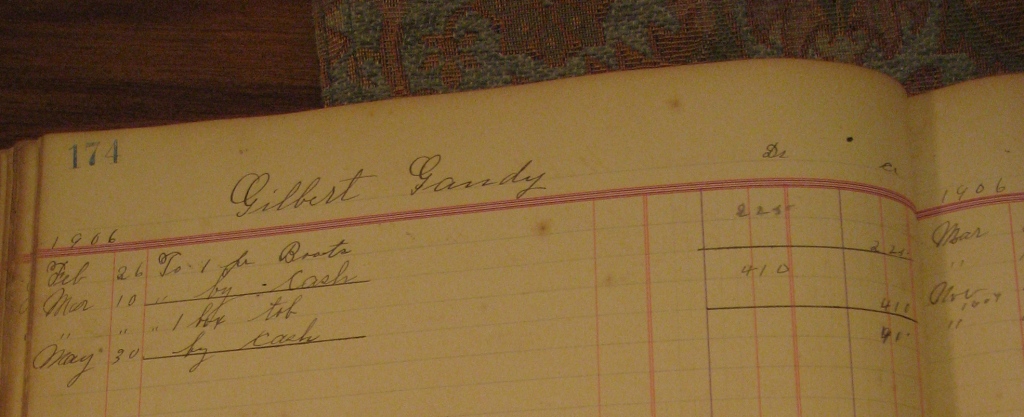 174
Gilbert Gandy
Dr Cr
1906
Feb 26 To 1 pr Boots 225
Mar 10 " by cash 225
" " " 1 box tob 410
May 30 by cash 410
1906
Mar
"
Nov
"